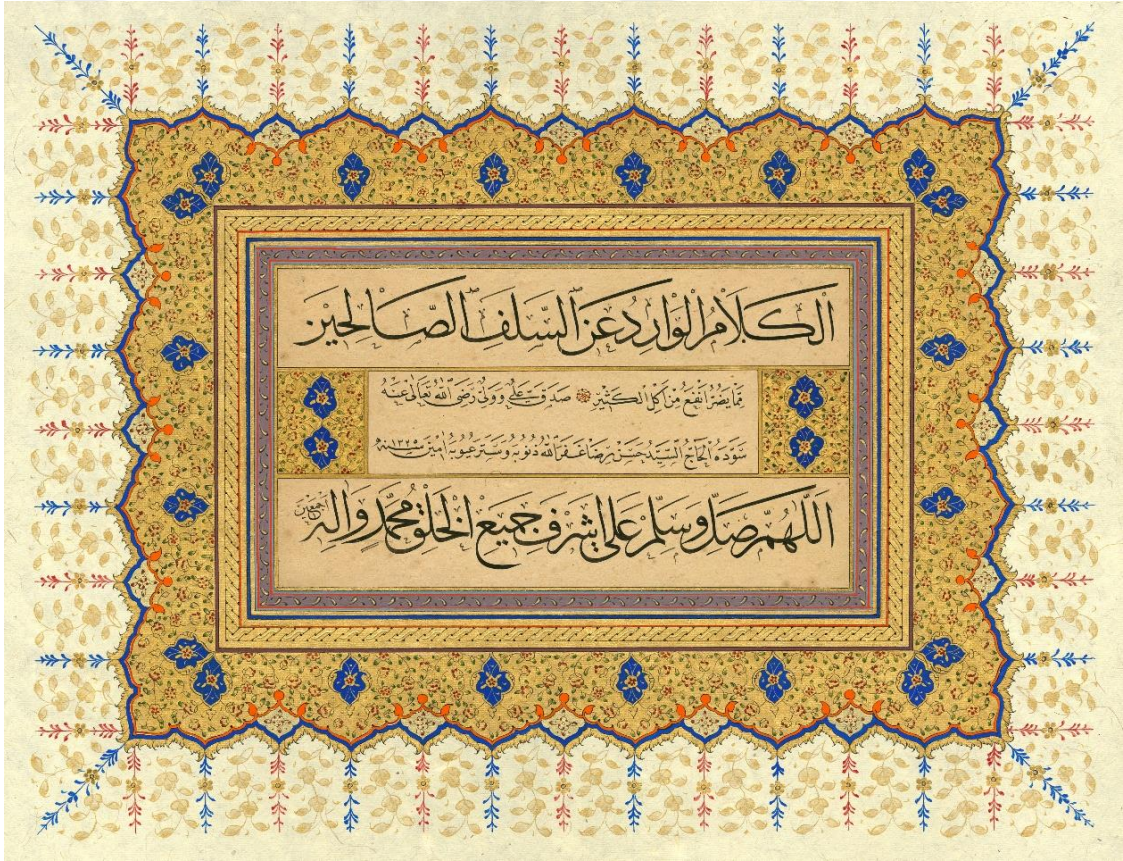 الكَلَامُ الْوَارِدُ عَنِ السَّلَفِ الصَّالِحِينَ
مِمَّا يَضُرُّ انْفَعُ مِنْ اَكْلِ الكَثِيرِ صَدَقَ عَلِى وَوَلِىّ رَضِىَ اللهُ تَعَالٰى عَنْهُ
سَوَّدَهُ الْحَاجّ السَّيِّدُ حَسَنْ رِضَا غَفَرَ اللهُ ذُنُوبَهُ وَسَتَرَ عُيُوبَهُ اٰمِينْ سنه
اَللّٰهُمَّ صَلِّ وَسَلِّمْ عَلٰى اَشْرَفِ جَمِيعِ الْخَلْقِ مُحَمَّدٍ وَاٰلِهِ اجمعين